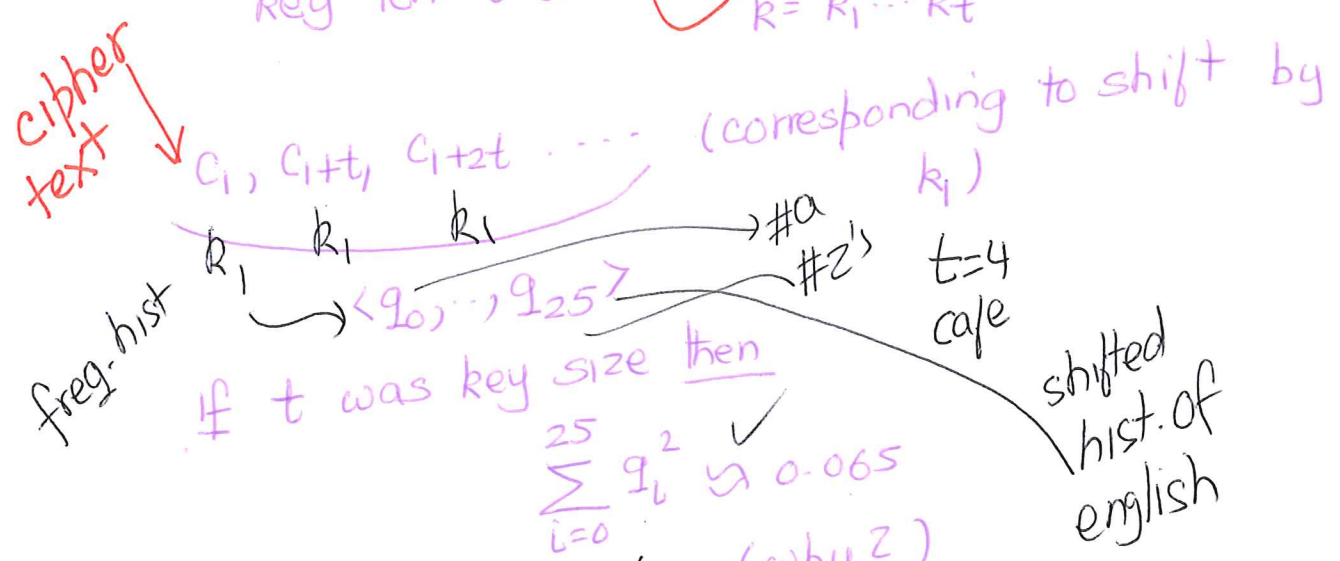 key
k = k₁ ... kt
cipher text
C₁, C₁+t, C₁+2t ..... (corresponding to shift by k₁)
k₁ k₁ k₁
→ #a
#z's
t=4
cafe
freq. hist
<q₀, .., q₂₅>
shifted hist. of english
If t was key size then
∑ᵢ₌₀²⁵ qᵢ² ≈ 0.065 ✓
(why?)